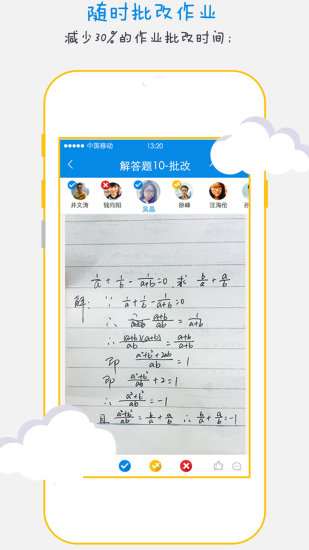 随时批改作业
减少30%的作业批改时间;
中国移动 13:20
解答题10-批改
井文涛 钱向阳 吴品 徐峰 汪海伦
1/a + 1/b - 1/(a+b) = 0, 求 b/a + a/b
解: ∵ 1/a + 1/b - 1/(a+b) = 0
∴ (a+b)/ab = 1/(a+b)
∴ (a+b)(a+b)/ab = (a+b)/(a+b)
即 (a²+b²+2ab)/ab = 1
即 (a²+b²)/ab + 2 = 1
∴ (a²+b²)/ab = -1
且 (a²+b²)/ab = b/a + a/b ∴ b/a + a/b = -1